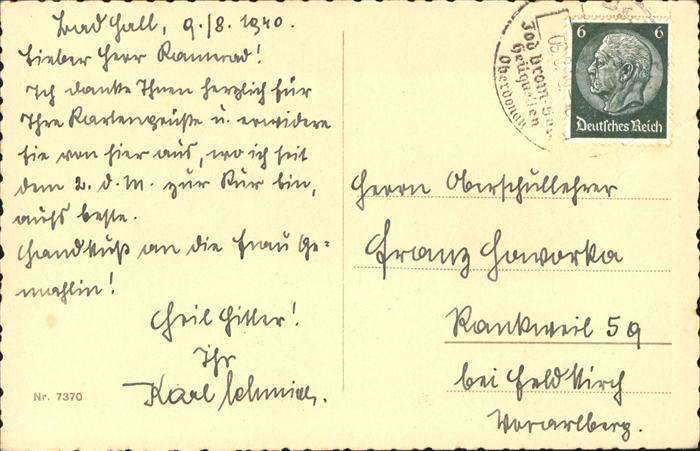 Bad Hall, 9./8. 1940.
Lieber Herr Kamerad!
Ich danke Ihnen herzlich für
Ihre Kartengrüße u. erwidere
sie von hier aus, wo ich seit
dem 2. d. M. zur Kur bin,
aufs beste.
Handkuß an die Frau Ge-
mahlin!
Heil Hitler!
Ihr
Karl Schmidt.
Nr. 7370
Jod brom
Heilquellen
Oberdonau
6 6
Deutsches Reich
Herrn Oberschullehrer
Franz Haworka
Rankweil 59
bei Feldkirch
Vorarlberg.